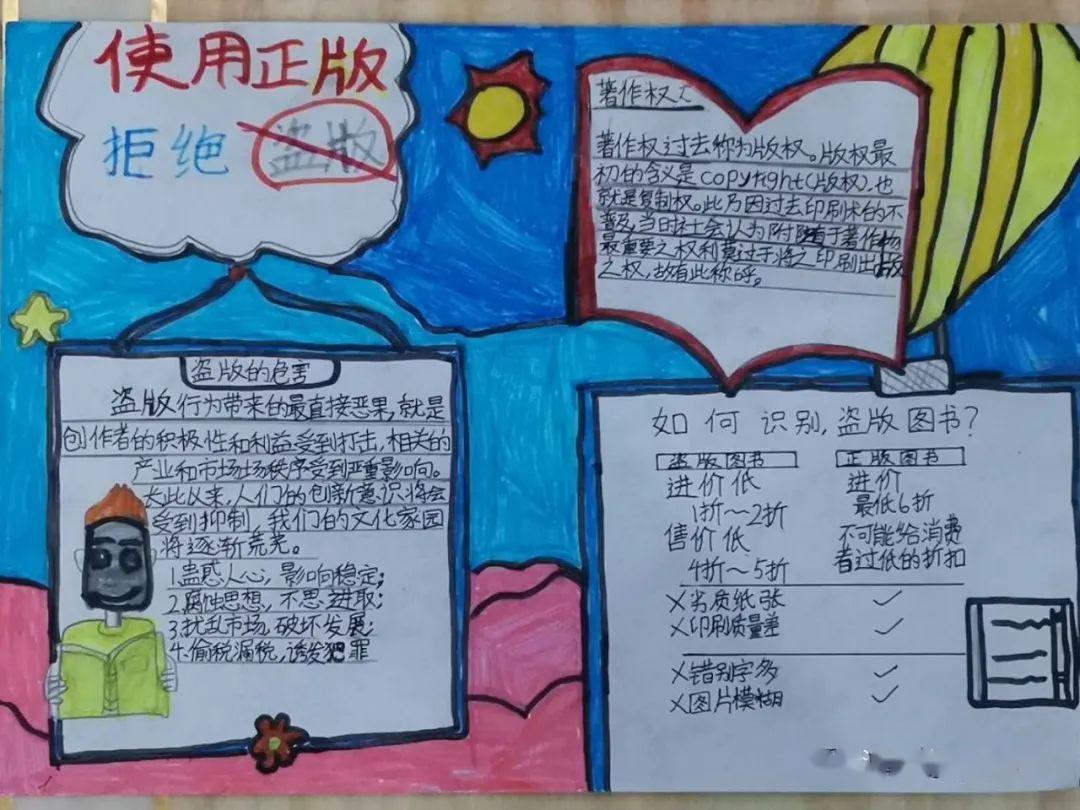 使用正版
拒绝 盗版
著作权
著作权过去称为版权。版权最
初的含义是copyright(版权),也
就是复制权。此乃因过去印刷术的不
普及,当时社会认为附随于著作物
最重要之权利莫过于将之印刷出版
之权,故有此称呼。
盗版的危害
盗版行为带来的最直接恶果,就是
创作者的积极性和利益受到打击,相关的
产业和市场场秩序受到严重影响。
长此以来,人们的创新意识将会
受到抑制,我们的文化家园
将逐渐荒芜。
1.蛊惑人心,影响稳定;
2.腐蚀思想,不思进取;
3.扰乱市场,破坏发展;
4.偷税漏税,诱发犯罪
如何识别,盗版图书?
盗版图书 正版图书
进价低 进价
1折~2折 最低6折
售价低 不可能给消费
4折~5折 者过低的折扣
X劣质纸张 ✓
X印刷质量差 ✓
X错别字多 ✓
X图片模糊 ✓